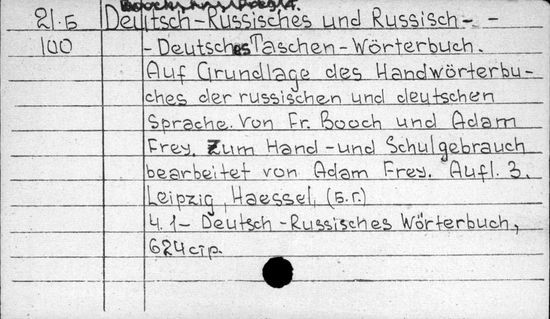 21.5 Deutsch-Russisches und Russisch-
100 -Deutsches Taschen-Wörterbuch.
Auf Grundlage des Handwörterbu-
ches der russischen und deutschen
Sprache. Von Fr. Booch und Adam
Frey. Zum Hand-und Schulgebrauch
bearbeitet von Adam Frey. Aufl. 3.
Leipzig, Haessel, (s.r.)
4. 1- Deutsch-Russisches Wörterbuch,
624 cтр.